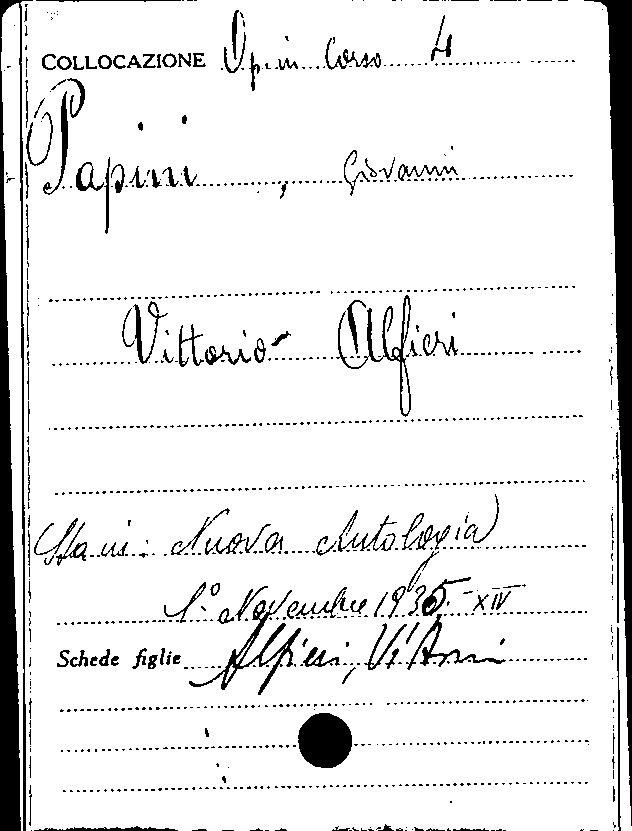 COLLOCAZIONE Op. in Corso 4
Papini, Giovanni
Vittorio Alfieri
(Sta in: Nuova Antologia)
1.º Novembre 1935-XIV
Schede figlie Alfieri, Vittorio